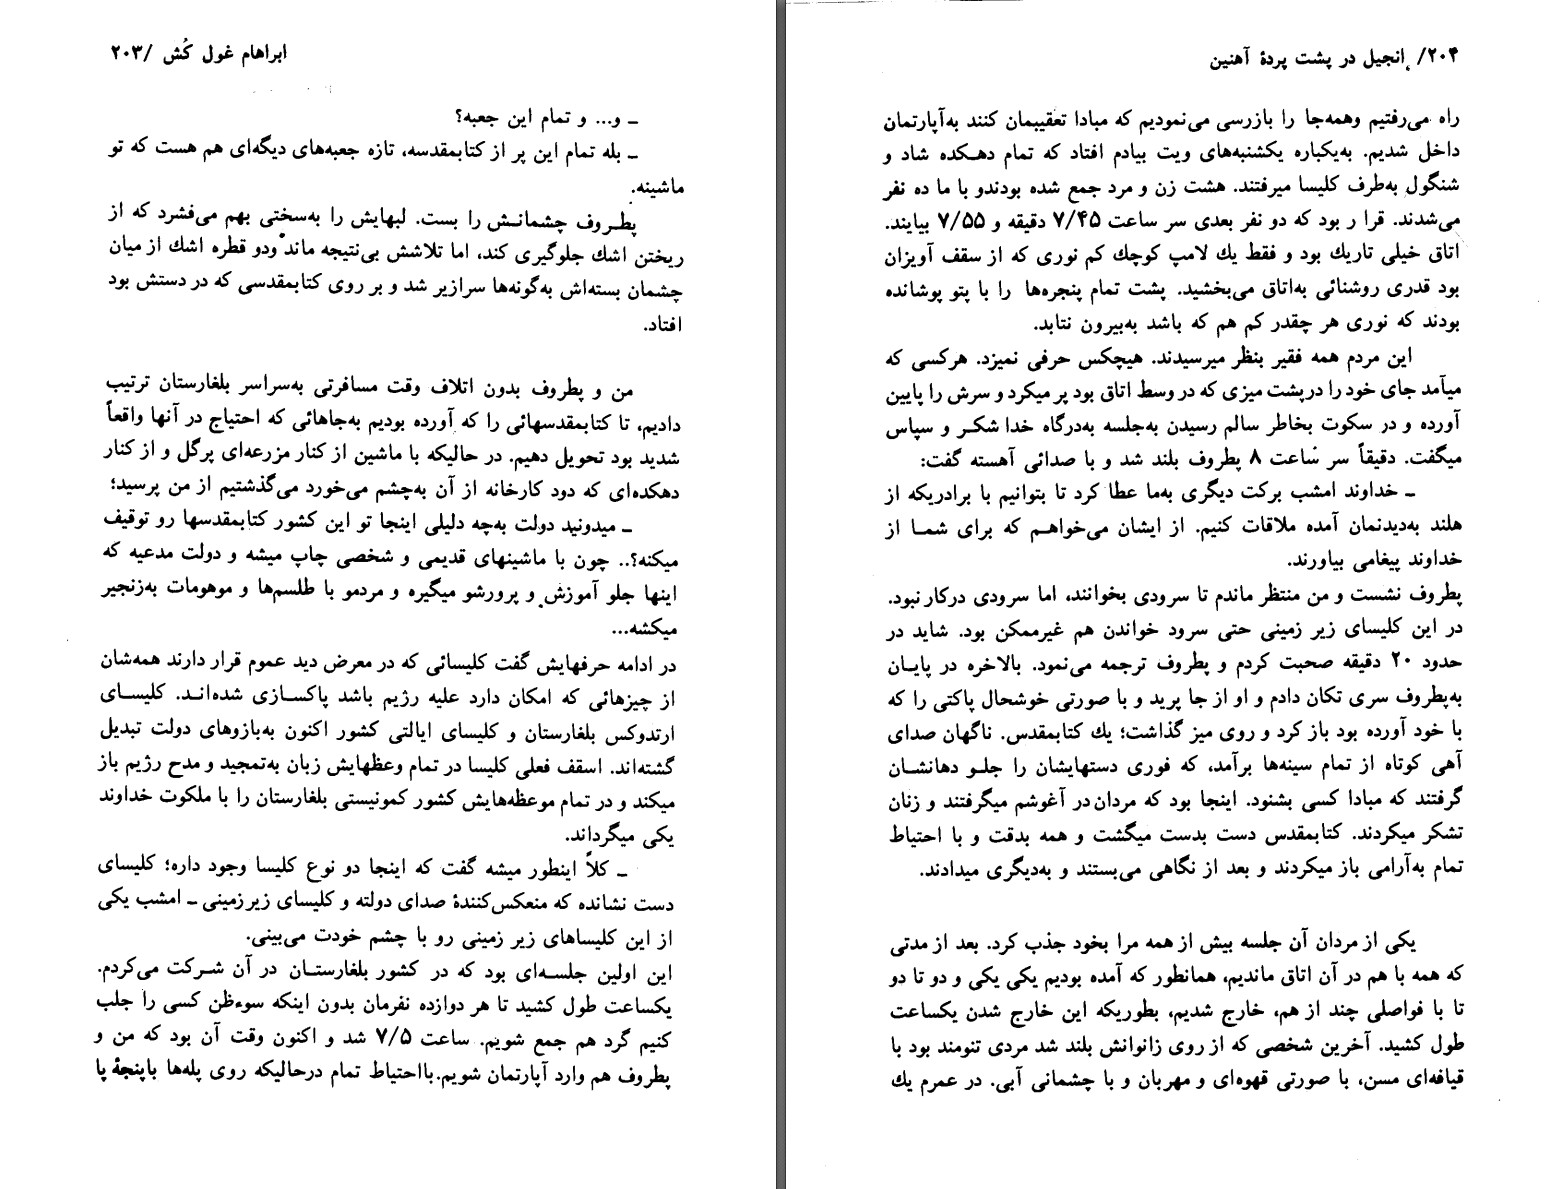 ابراهام غول کُش /۲۰۳
ـ و... و تمام این جعبه؟
ـ بله تمام این پر از کتابمقدسه، تازه جعبه‌های دیگه‌ای هم هست که تو
ماشینه.
پطـروف چشمانـش را بست. لبهایش را به‌سختی بهم می‌فشرد که از
ریختن اشك جلوگیری کند، اما تلاشش بی‌نتیجه ماند ودو قطره اشك از میان
چشمان بسته‌اش به‌گونه‌ها سرازیر شد و بر روی کتابمقدسی که در دستش بود
افتاد.
من و پطروف بدون اتلاف وقت مسافرتی به‌سراسر بلغارستان ترتیب
دادیم، تا کتابمقدسهائی را که آورده بودیم به‌جاهائی که احتیاج در آنها واقعاً
شدید بود تحویل دهیم. در حالیکه با ماشین از کنار مزرعه‌ای پرگل و از کنار
دهکده‌ای که دود کارخانه از آن به‌چشم می‌خورد می‌گذشتیم از من پرسید؛
ـ میدونید دولت به‌چه دلیلی اینجا تو این کشور کتابمقدسها رو توقیف
میکنه؟.. چون با ماشینهای قدیمی و شخصی چاپ میشه و دولت مدعیه که
اینها جلو آموزش و پرورشو میگیره و مردمو با طلسم‌ها و موهومات به‌زنجیر
میکشه...
در ادامه حرفهایش گفت کلیسائی که در معرض دید عموم قرار دارند همه‌شان
از چیزهائی که امکان دارد علیه رژیم باشد پاکسـازی شده‌انـد. کلیسـای
ارتدوکس بلغارستان و کلیسای ایالتی کشور اکنون به‌بازوهای دولت تبدیل
گشته‌اند. اسقف فعلی کلیسا در تمام وعظهایش زبان به‌تمجید و مدح رژیم باز
میکند و در تمام موعظه‌هایش کشور کمونیستی بلغارستان را با ملکوت خداوند
یکی میگرداند.
ـ کلاً اینطور میشه گفت که اینجا دو نوع کلیسا وجود داره؛ کلیسای
دست نشانده که منعکس‌کنندهٔ صدای دولته و کلیسای زیرزمینی ـ امشب یکی
از این کلیساهای زیر زمینی رو با چشم خودت می‌بینی.
این اولین جلسـه‌ای بود که در کشور بلغارستـان در آن شـرکت می‌کردم.
یکساعت طول کشید تا هر دوازده نفرمان بدون اینکه سوءظن کسی را جلب
کنیم گرد هم جمع شویم. ساعت ۷/۵ شد و اکنون وقت آن بود که من و
پطروف هم وارد آپارتمان شویم.بااحتیاط تمام درحالیکه روی پله‌ها باپنجهٔ پا
۲۰۴/ انجیل در پشت پردهٔ آهنین
راه می‌رفتیم وهمه‌جا را بازرسی می‌نمودیم که مبادا تعقیبمان کنند به‌آپارتمان
داخل شدیم. به‌یکباره یکشنبه‌های ویت بیادم افتاد که تمام دهـکده شاد و
شنگول به‌طرف کلیسا میرفتند. هشت زن و مرد جمع شده بودندو با ما ده نفر
می‌شدند. قرا ر بود که دو نفر بعدی سر ساعت ۷/۴۵ دقیقه و ۷/۵۵ بیایند.
اتاق خیلی تاریك بود و فقط یك لامپ کوچك کم نوری که از سقف آویزان
بود قدری روشنائی به‌اتاق می‌بخشید. پشت تمام پنجره‌ها را با پتو پوشانده
بودند که نوری هر چقدر کم هم که باشد به‌بیرون نتابد.
این مردم همه فقیر بنظر میرسیدند. هیچکس حرفی نمیزد. هرکسی که
میآمد جای خود را درپشت میزی که در وسط اتاق بود پر میکرد و سرش را پایین
آورده و در سکوت بخاطر سالم رسیدن به‌جلسه به‌درگاه خدا شکـر و سپاس
میگفت. دقیقاً سر ساعت ۸ پطروف بلند شد و با صدائی آهسته گفت:
ـ خداوند امشب برکت دیگری به‌ما عطا کرد تا بتوانیم با برادریکه از
هلند به‌دیدنمان آمده ملاقات کنیم. از ایشان می‌خواهـم که برای شمـا از
خداوند پیغامی بیاورند.
پطروف نشست و من منتظر ماندم تا سرودی بخوانند، اما سرودی درکار نبود.
در این کلیسای زیر زمینی حتی سرود خواندن هم غیرممکن بود. شاید در
حدود ۲۰ دقیقه صحبت کردم و پطروف ترجمه می‌نمود. بالاخره در پایـان
به‌پطروف سری تکان دادم و او از جا پرید و با صورتی خوشحال پاکتی را که
با خود آورده بود باز کرد و روی میز گذاشت؛ یك کتابمقدس. ناگهان صدای
آهی کوتاه از تمام سینه‌ها برآمد، که فوری دستهایشان را جلـو دهانشـان
گرفتند که مبادا کسی بشنود. اینجا بود که مردان در آغوشم میگرفتند و زنان
تشکر میکردند. کتابمقدس دست بدست میگشت و همه بدقت و با احتیاط
تمام به‌آرامی باز میکردند و بعد از نگاهی می‌بستند و به‌دیگری میدادند.
یکی از مردان آن جلسه بیش از همه مرا بخود جذب کرد. بعد از مدتی
که همه با هم در آن اتاق ماندیم، همانطور که آمده بودیم یکی یکی و دو تا دو
تا با فواصلی چند از هم، خارج شدیم، بطوریکه این خارج شدن یکساعت
طول کشید. آخرین شخصی که از روی زانوانش بلند شد مردی تنومند بود با
قیافه‌ای مسن، با صورتی قهوه‌ای و مهربان و با چشمانی آبی. در عمرم یك